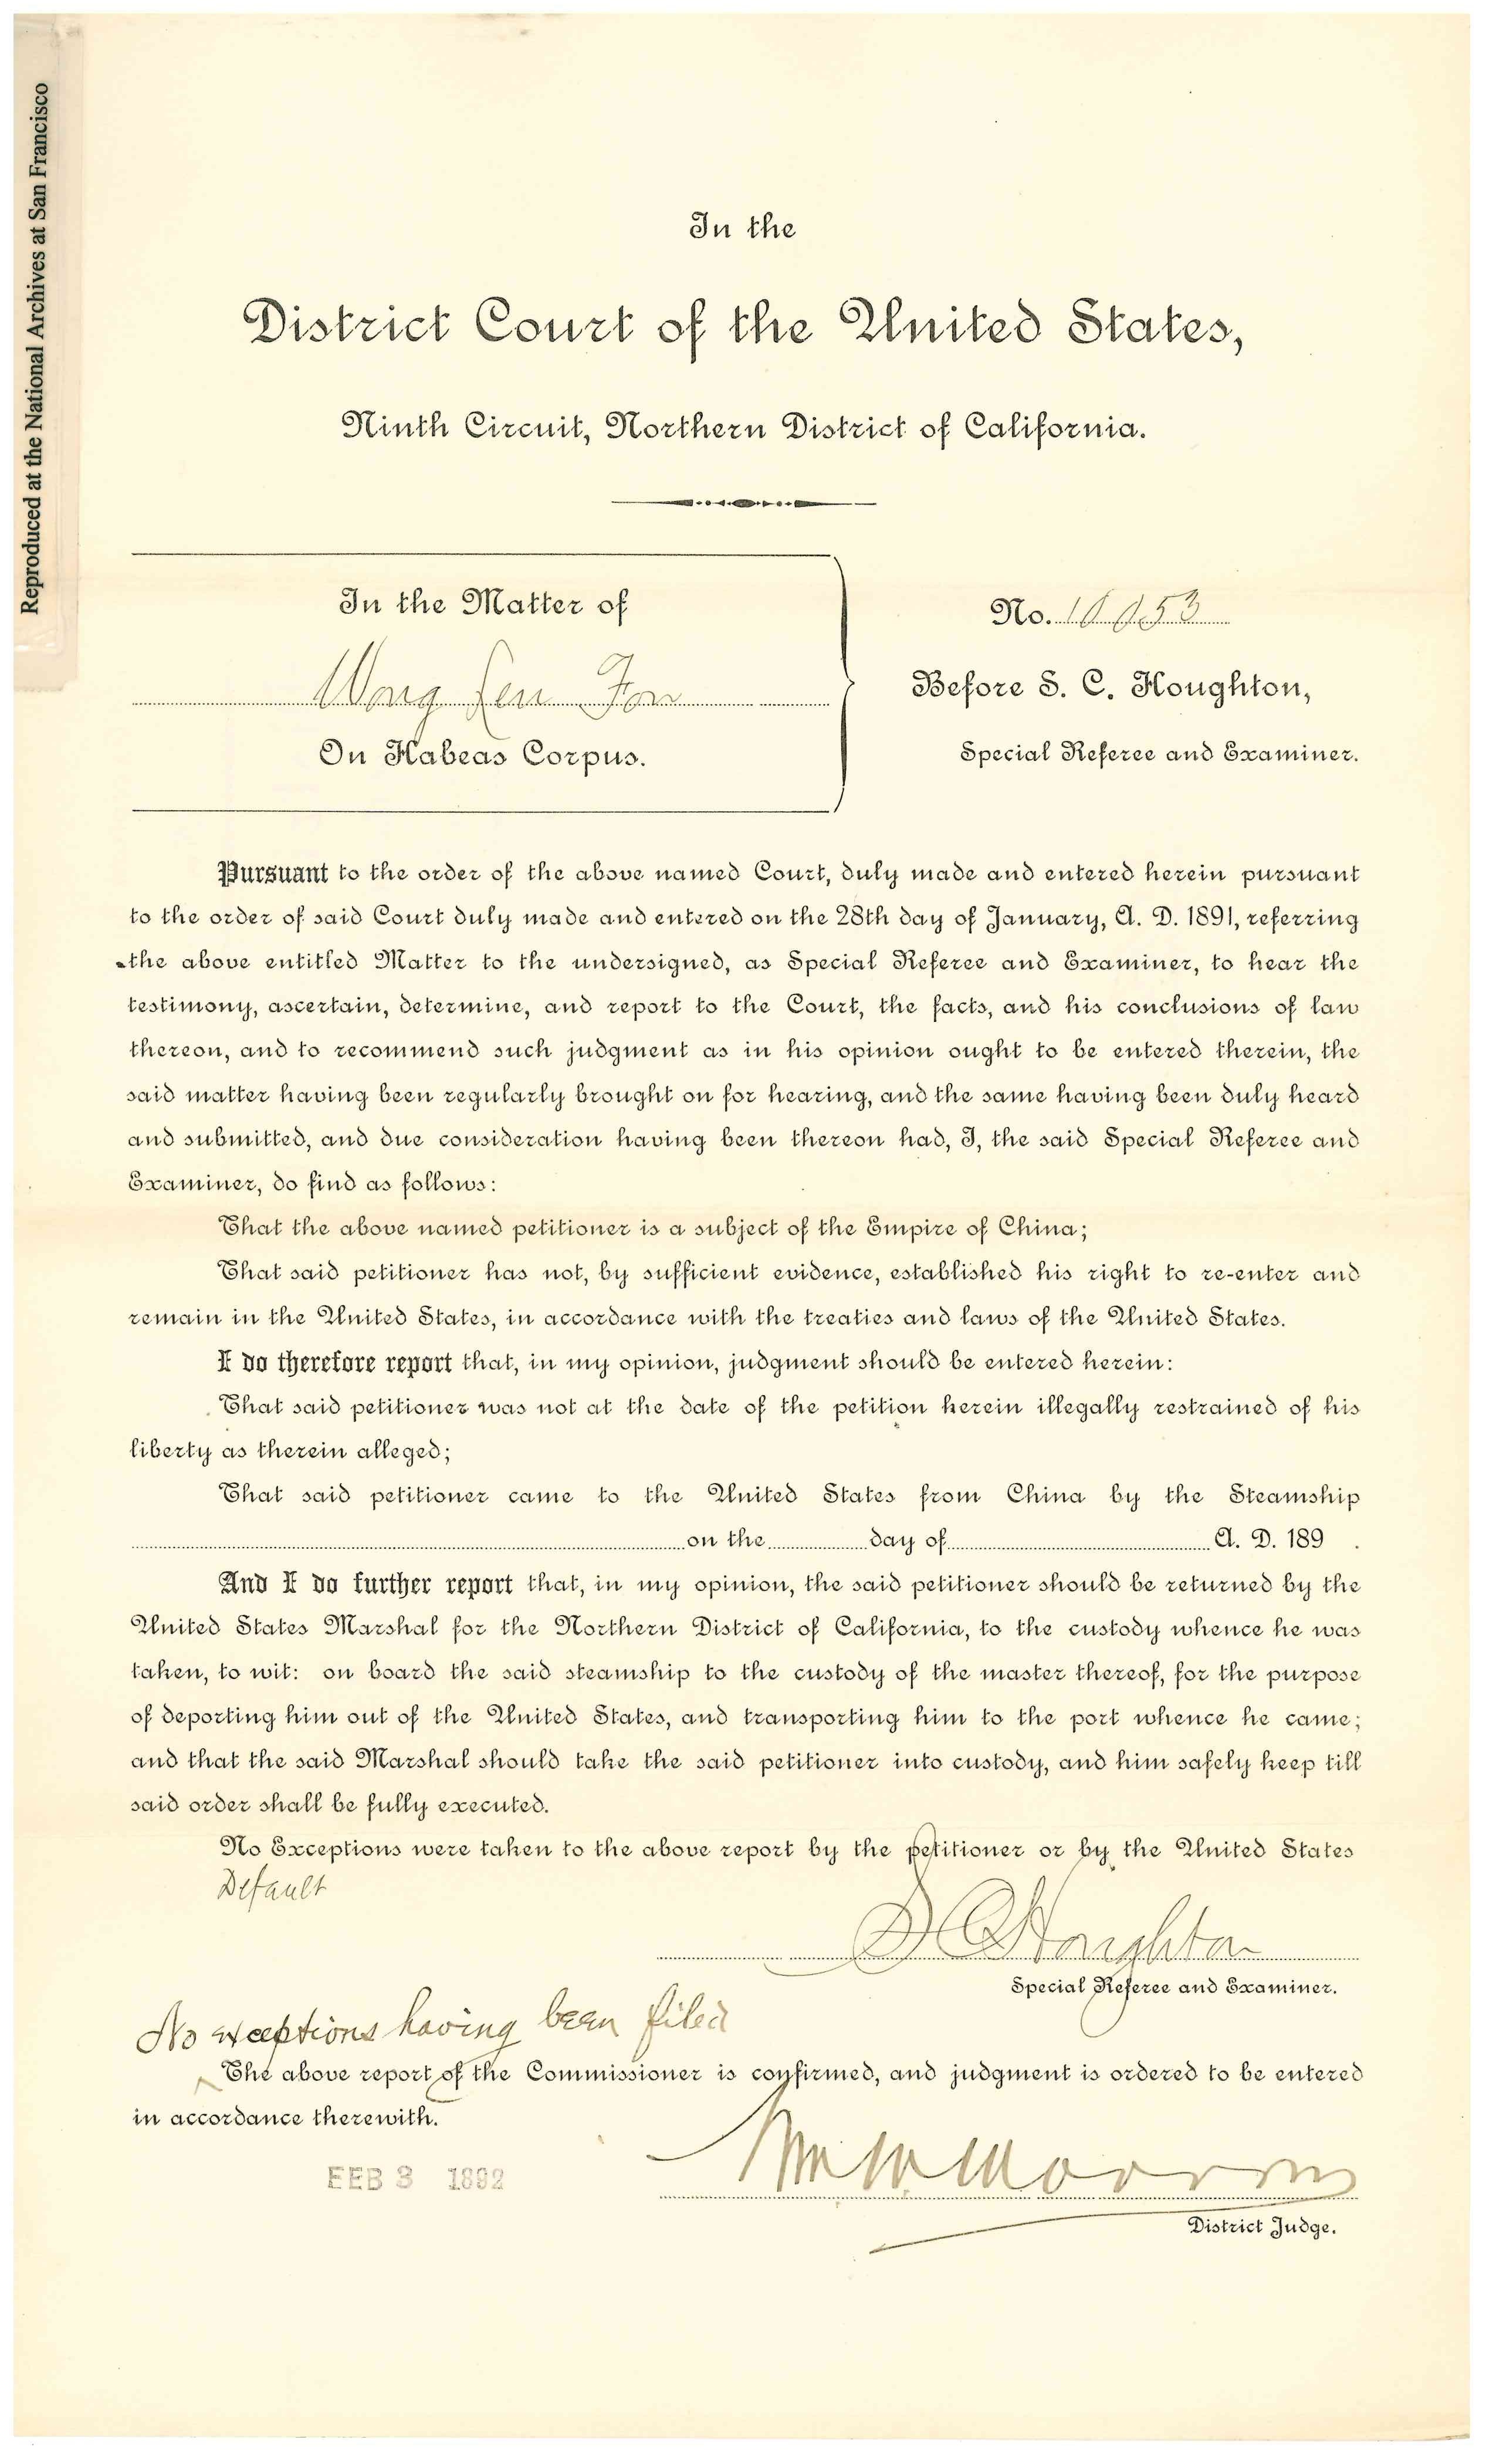 Reproduced at the National Archives at San Francisco
In the
District Court of the United States,
Ninth Circuit, Northern District of California.
In the Matter of
Wong
On Habeas Corpus.
No.
Before S. C. Houghton,
Special Referee and Examiner.
Pursuant to the order of the above named Court, duly made and entered herein pursuant
to the order of said Court duly made and entered on the 28th day of January, A. D. 1891, referring
the above entitled Matter to the undersigned, as Special Referee and Examiner, to hear the
testimony, ascertain, determine, and report to the Court, the facts, and his conclusions of law
thereon, and to recommend such judgment as in his opinion ought to be entered therein, the
said matter having been regularly brought on for hearing, and the same having been duly heard
and submitted, and due consideration having been thereon had, I, the said Special Referee and
Examiner, do find as follows:
That the above named petitioner is a subject of the Empire of China;
That said petitioner has not, by sufficient evidence, established his right to re-enter and
remain in the United States, in accordance with the treaties and laws of the United States.
I do therefore report that, in my opinion, judgment should be entered herein:
That said petitioner was not at the date of the petition herein illegally restrained of his
liberty as therein alleged;
That said petitioner came to the United States from China by the Steamship
on the day of A. D. 189 .
And I do further report that, in my opinion, the said petitioner should be returned by the
United States Marshal for the Northern District of California, to the custody whence he was
taken, to wit: on board the said steamship to the custody of the master thereof, for the purpose
of deporting him out of the United States, and transporting him to the port whence he came;
and that the said Marshal should take the said petitioner into custody, and him safely keep till
said order shall be fully executed.
No Exceptions were taken to the above report by the petitioner or by the United States
Default
S C Houghton
Special Referee and Examiner.
No exceptions having been filed
The above report of the Commissioner is confirmed, and judgment is ordered to be entered
in accordance therewith.
FEB 3 1892
Wm W Morrow
District Judge.